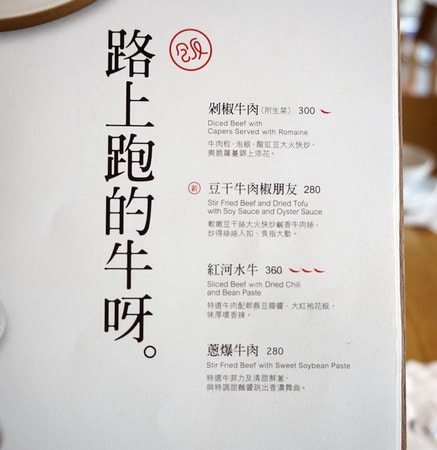 路上跑的牛呀。
剁椒牛肉(附生菜) 300
Diced Beef with
Capers Served with Romaine
牛肉粒、泡椒、酸豇豆大火快炒,
爽脆蘿蔓錦上添花。
新 豆干牛肉椒朋友 280
Stir Fried Beef and Dried Tofu
with Soy Sauce and Oyster Sauce
軟嫩豆干絲大火快炒鹹香牛肉絲,
炒得絲絲入扣、食指大動。
紅河水牛 360
Sliced Beef with Dried Chili
and Bean Paste
特選牛肉配郫縣豆瓣醬、大紅袍花椒,
味厚噴香辣。
蔥爆牛肉 280
Stir Fried Beef with Sweet Soybean Paste
特選牛菲力及清甜鮮蔥,
與特調甜麵醬跳出香濃舞曲。